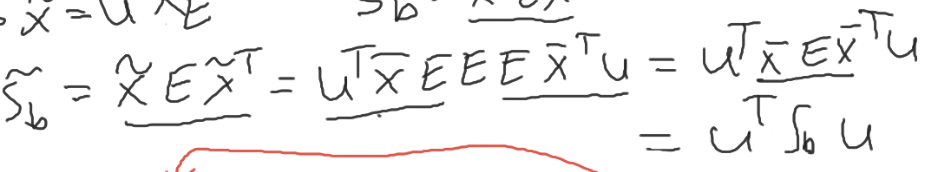 x̃ = U^T X̄ E   S_b = X̄ E X̄^T
S̃_b = X̃ E X̃^T = U^T X̄ E E E X̄^T U = U^T X̄ E X̄^T U
= U^T S_b U